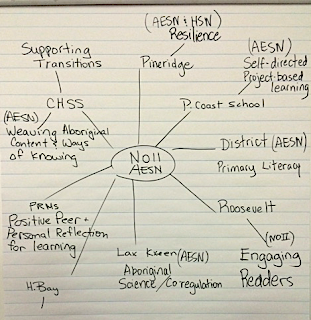 (AESN & HSN)
Resilience
Pineridge
Supporting
Transitions
CHSS
(AESN)
Weaving Aboriginal
Content & Ways
of Knowing
(AESN)
Self-directed
Project-based
learning
P. Coast School
NOII
AESN
District (AESN)
Primary Literacy
Roosevelt
(NOII)
Engaging
Readers
PRMS
Positive Peer +
Personal Reflection
for learning
Lax Kxeen (AESN)
Aboriginal
Science / Co regulation
H. Bay